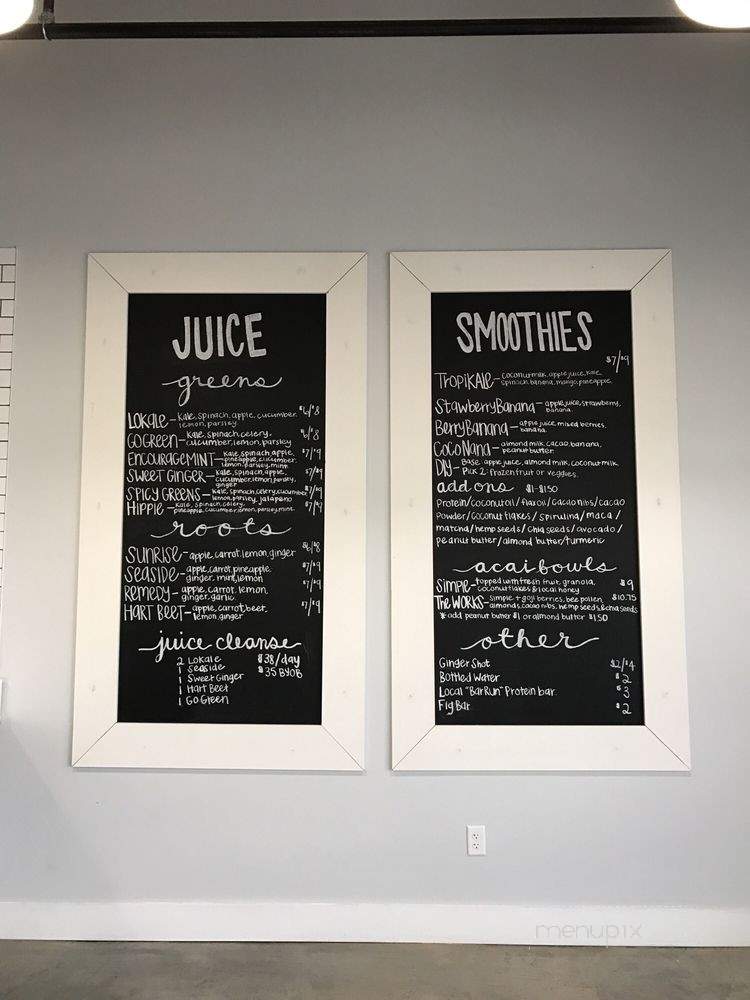 JUICE
greens
LOKALE - kale, spinach, apple, cucumber, $6/$8
lemon, parsley
GO GREEN - kale, spinach, celery, $6/$8
cucumber, lemon, parsley
ENCOURAGEMINT - kale, spinach, apple, $7/$9
pineapple, cucumber,
lemon, parsley, mint
SWEET GINGER - kale, spinach, apple, $7/$9
cucumber, lemon, parsley,
ginger
SPICY GREENS - kale, spinach, celery, cucumber $7/$9
lemon, parsley, jalapeno
HIPPIE - kale, spinach, celery, $7/$9
pineapple, cucumber, lemon, parsley, mint
roots
SUNRISE - apple, carrot, lemon, ginger $6/$8
SEASIDE - apple, carrot, pineapple, $7/$9
ginger, mint, lemon
REMEDY - apple, carrot, lemon, $7/$9
ginger, garlic
HART BEET - apple, carrot, beet, $7/$9
lemon, ginger
juice cleanse
2 LOKALE $38/day
1 Seaside $35 BYOB
1 Sweet Ginger
1 Hart Beet
1 Go Green
SMOOTHIES
$7/$9
TROPIKALE - coconut milk, apple juice, kale,
spinach, banana, mango, pineapple
StawberryBanana - apple juice, strawberry,
banana
BerryBanana - apple juice, mixed berries,
banana
CocoNana - almond milk, cacao, banana,
peanut butter
DIY - Base: apple juice, almond milk, coconut milk
Pick 2: frozen fruit or veggies
add ons $1-$1.50
Protein/coconut oil/flax oil/cacao nibs/cacao
powder/coconut flakes/spirulina/maca/
matcha/hemp seeds/chia seeds/avocado/
peanut butter/almond butter/turmeric
acai bowls
Simple - topped with fresh fruit, granola, $9
coconut flakes & local honey
The WORKS - simple + goji berries, bee pollen $10.75
almonds, cacao nibs, hemp seeds & chia seeds
* add peanut butter $1 or almond butter $1.50
other
Ginger Shot $2/$4
Bottled Water $2
Local "BarRun" Protein bar $3
Fig Bar $2
menupix